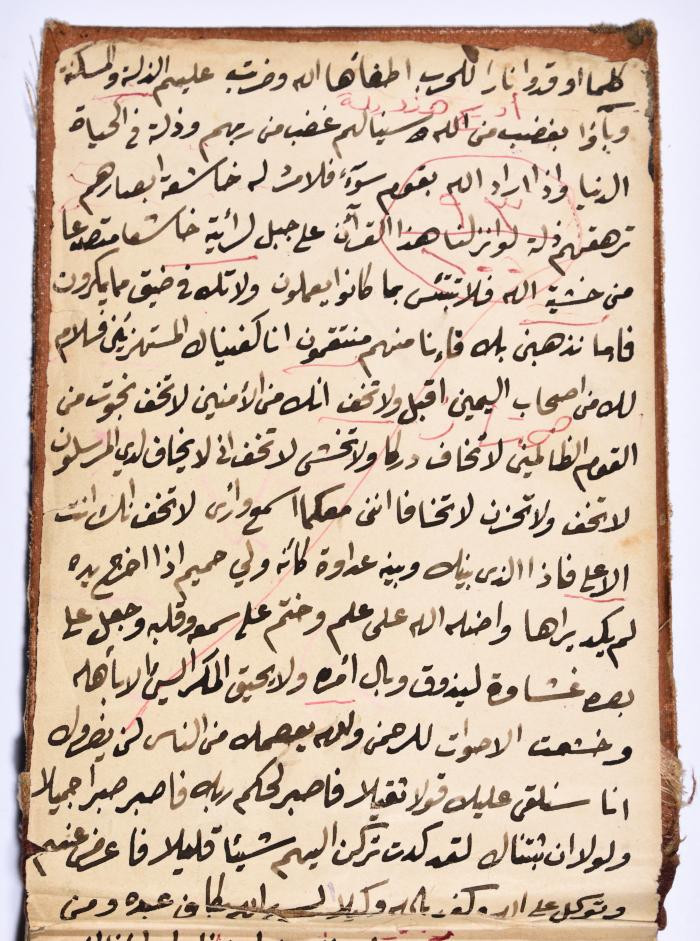 كلما اوقدوا نارا للحرب اطفأها الله وضربت عليهم الذلة والمسكنة
وبآؤا بغضب من الله سينالهم غضب من ربهم وذلة في الحياة
الدنيا واذا اراد الله بقوم سوآءً فلا مرد له خاشعة ابصارهم
ترهقهم ذلة لو انزلنا هذا القرآن على جبل لرأيته خاشعا متصدعا
من خشية الله فلا تبتئس بما كانوا يعملون ولا تك في ضيق مما يمكرون
فاما نذهبن بك فاءنا منهم منتقمون انا كفيناك المستهزئين فسلام
لك من اصحاب اليمين اقبل ولا تخف انك من الأمنين لا تخف نجوت من
القوم الظالمين لا تخاف دركا ولا تخشى لا تخف اني لا يخاف لدي المرسلون
لا تخف ولا تحزن لا تخافا انني معكما اسمع وأرى لا تخف انك انت
الاعلى فاذا الذي بينك وبينه عداوة كأنه ولي حميم اذا اخرج يده
لم يكد يراها واضله الله على علم وختم على سمعه وقلبه وجعل على
بصره غشاوة ليذوق وبال أمره ولا يحيق المكر السئ الا بأهله
وخشعت الاصوات للرحمن والله يعصمك من الناس لن يضروك
انا سنلقي عليك قولا ثقيلا فاصبر لحكم ربك فاصبر صبرا جميلا
ولولا ان ثبتناك لقد كدت تركن اليهم شيئا قليلا فاعرض عنهم
وتوكل على الله وكفى بالله وكيلا اليس الله بكاف عبده ومن